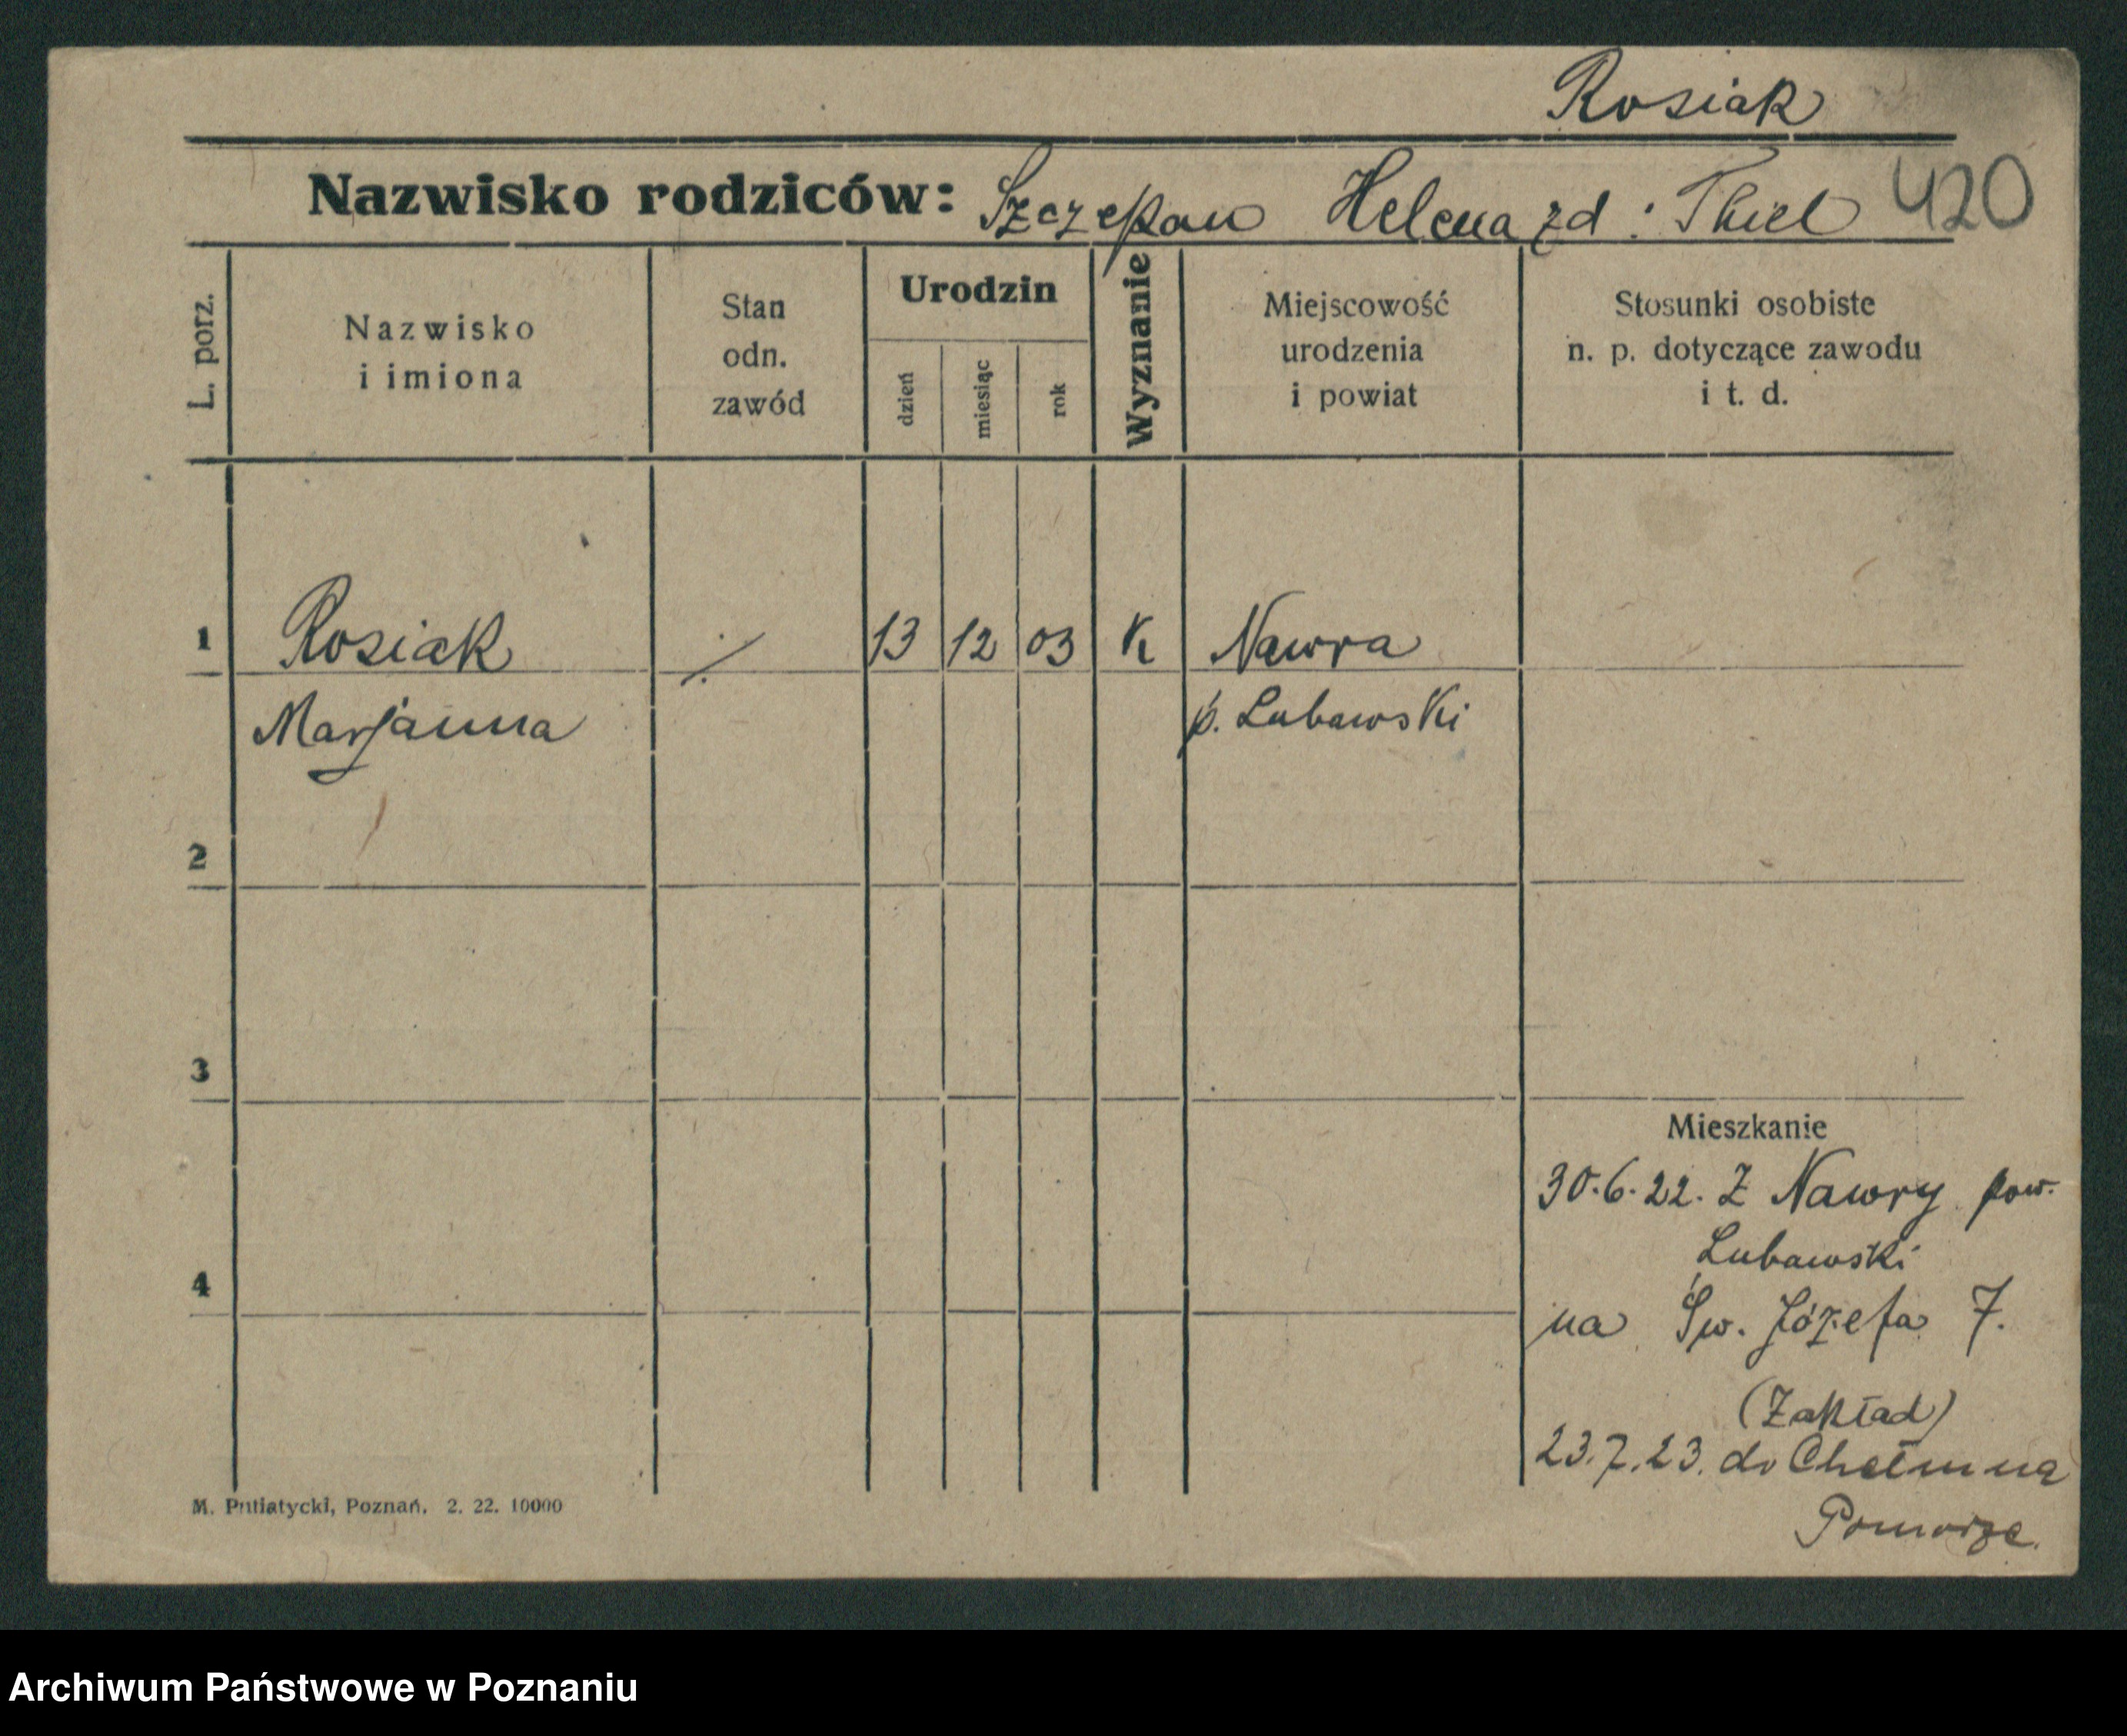 Rosiak
Nazwisko rodziców: Szczepan Helena zd: Thiel 420
L. porz.
Nazwisko
i imiona
Stan
odn.
zawód
Urodzin
dzień
miesiąc
rok
Wyznanie
Miejscowość
urodzenia
i powiat
Stosunki osobiste
n. p. dotyczące zawodu
i t. d.
1 Rosiak ./. 13 12 03 K Nawra
Marjanna p. Lubawski
2
3
Mieszkanie
30.6.22. Z Nawry pow.
Lubawski
4
na Św. Józefa 7.
(Zakład)
23.7.23. do Chełmna
Pomorze.
M. Putiatycki, Poznań. 2. 22. 10000
Archiwum Państwowe w Poznaniu